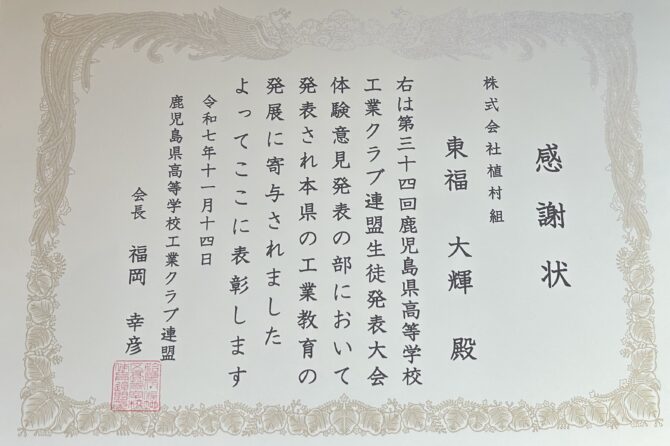 感謝状
株式会社植村組
東福 大輝 殿
右は第三十四回鹿児島県高等学校
工業クラブ連盟生徒発表大会
体験意見発表の部において
発表され本県の工業教育の
発展に寄与されました
よってここに表彰します
令和七年十一月十四日
鹿児島県高等学校工業クラブ連盟
会長 福岡 幸彦